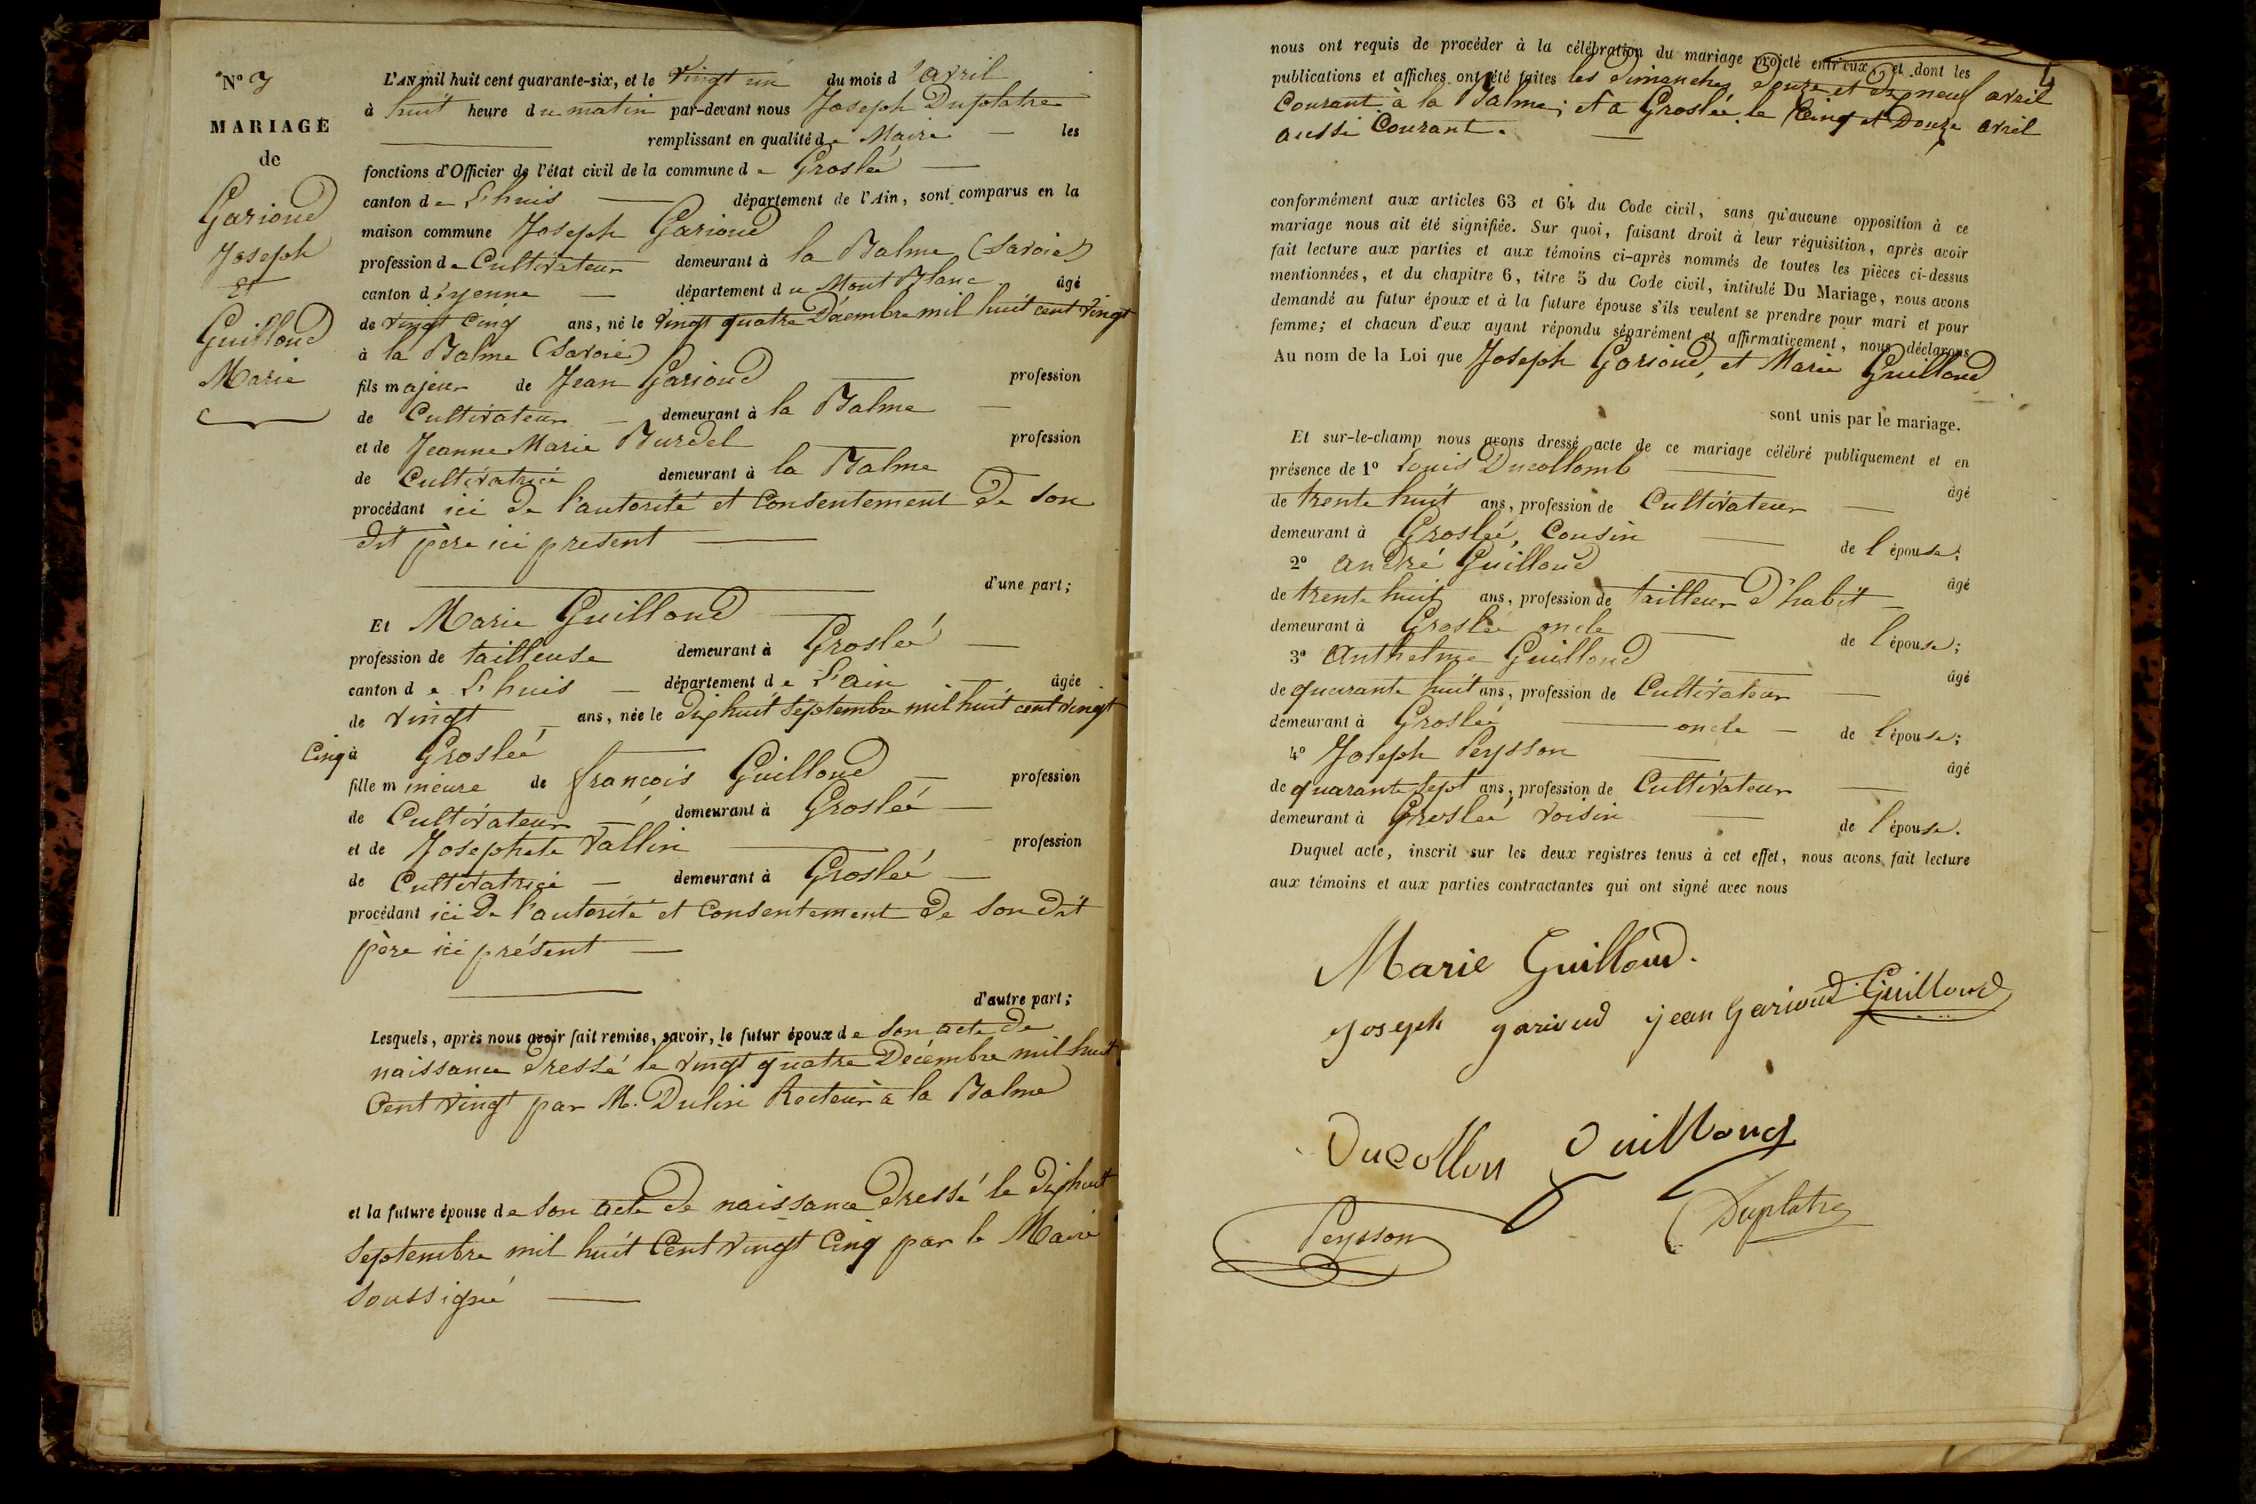 N° 7
MARIAGE
de
Garioud
Joseph
et
Guilloud
Marie
L'AN mil huit cent quarante-six, et le vingt un du mois d'avril
à huit heure du matin par-devant nous Joseph Duplatre
remplissant en qualité de Maire les
fonctions d'Officier de l'état civil de la commune de Groslée
canton de L'huis département de l'Ain, sont comparus en la
maison commune Joseph Garioud
profession de Cultivateur demeurant à la Balme (Savoie)
canton d'éyenne département du Mont Blanc âgé
de vingt cinq ans, né le vingt quatre Décembre mil huit cent vingt
à la Balme (Savoie)
fils majeur de Jean Garioud profession
de Cultivateur demeurant à la Balme
et de Jeanne Marie Burdel profession
de Cultivatrice demeurant à la Balme
procédant ici de l'autorité et consentement de son
dit père ici présent
d'une part;
Et Marie Guilloud
profession de tailleuse demeurant à Groslée
canton de L'huis département de L'ain âgée
de vingt ans, née le dix huit Septembre mil huit cent vingt
cinq à Groslée
fille mineure de françois Guilloud profession
de Cultivateur demeurant à Groslée
et de Josephete Vallin profession
de Cultivatrice demeurant à Groslée
procédant ici de l'autorité et consentement de son dit
père ici présent
d'autre part;
Lesquels, après nous avoir fait remise, savoir, le futur époux de son acte de
naissance dressé le vingt quatre Décembre mil huit
Cent vingt par M. Dulin Recteur à la Balme
et la future épouse de son acte de naissance dressé le dix huit
Septembre mil huit Cent vingt cinq par le Maire
Soussigné
nous ont requis de procéder à la célébration du mariage projeté entr'eux, et dont les
publications et affiches ont été faites les dimanches douze et dix neuf avril
Courant à la Balme; et à Groslée le Cinq et Douze avril
aussi Courant.
conformément aux articles 63 et 64 du Code civil, sans qu'aucune opposition à ce
mariage nous ait été signifiée. Sur quoi, faisant droit à leur réquisition, après avoir
fait lecture aux parties et aux témoins ci-après nommés de toutes les pièces ci-dessus
mentionnées, et du chapitre 6, titre 5 du Code civil, intitulé Du Mariage, nous avons
demandé au futur époux et à la future épouse s'ils veulent se prendre pour mari et pour
femme; et chacun d'eux ayant répondu séparément et affirmativement, nous déclarons
Au nom de la Loi que Joseph Garioud, et Marie Guilloud
sont unis par le mariage.
Et sur-le-champ nous avons dressé acte de ce mariage célébré publiquement et en
présence de 1° Louis Ducollomb âgé
de trente huit ans, profession de Cultivateur
demeurant à Groslée, Cousin de l'épouse;
2° André Guilloud âgé
de trente huit ans, profession de tailleur d'habit
demeurant à Groslée oncle de l'épouse;
3° Anthelme Guilloud âgé
de quarante huit ans, profession de Cultivateur
demeurant à Groslée oncle de l'épouse;
4° Joseph Peysson âgé
de quarante sept ans, profession de Cultivateur
demeurant à Groslée voisin de l'épouse.
Duquel acte, inscrit sur les deux registres tenus à cet effet, nous avons fait lecture
aux témoins et aux parties contractantes qui ont signé avec nous
Marie Guilloud.
joseph garioud jean Garioud Guilloud
Ducollon Guilloud
Peysson Duplatre